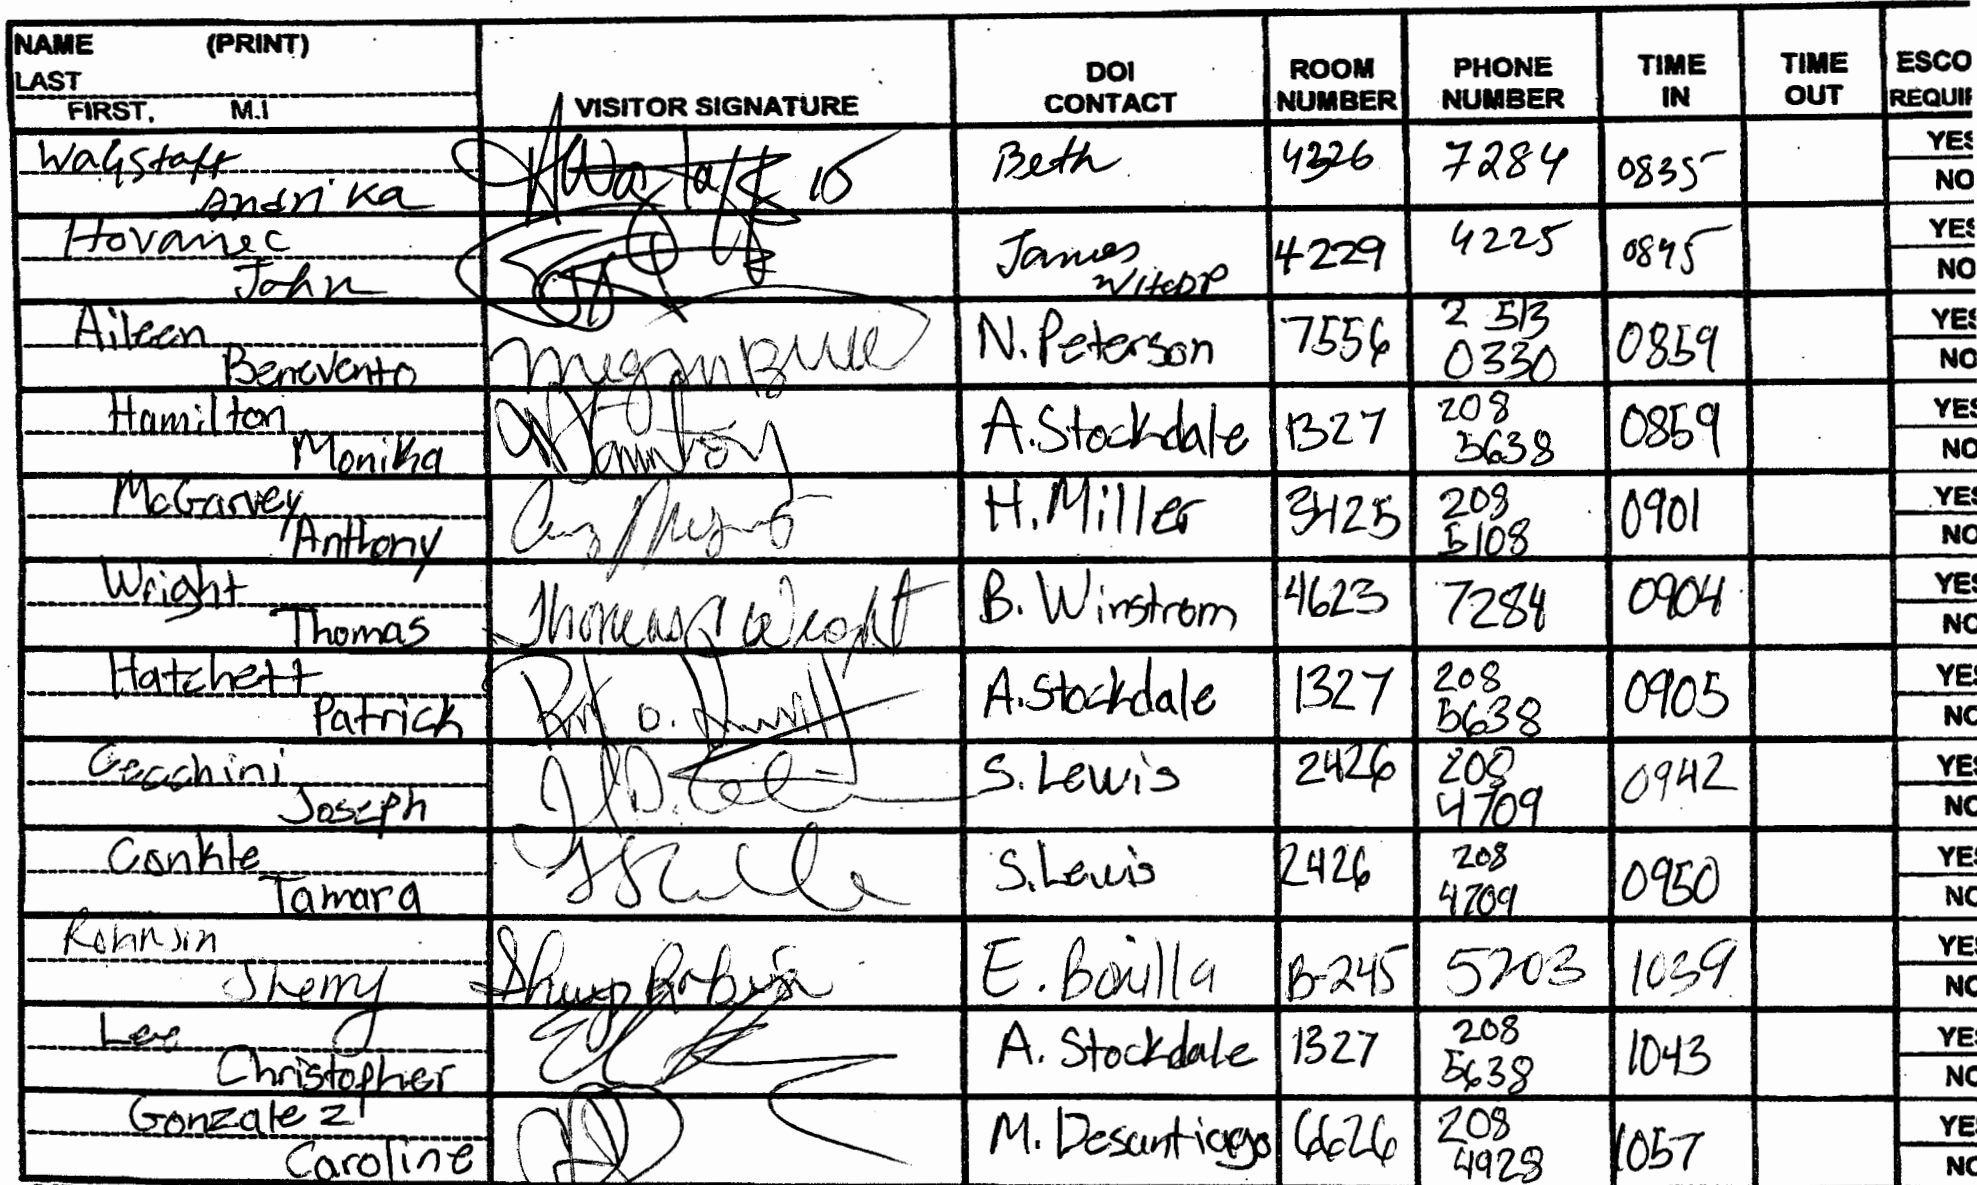 NAME (PRINT)
LAST
FIRST, M.I
VISITOR SIGNATURE
DOI CONTACT
ROOM NUMBER
PHONE NUMBER
TIME IN
TIME OUT
ESCO
REQUIR
Wagstaff Andrika Beth 4326 7284 0835 YES NO
Hovanec John James 4229 4225 0845 YES NO
Aileen Benevento N. Peterson 7556 2 513 0330 0859 YES NO
Hamilton Monika A. Stockdale 1327 208 5638 0859 YES NO
McGarvey Anthony H. Miller 3425 208 5108 0901 YES NO
Wright Thomas Thomas Wright B. Winstrom 4623 7284 0904 YES NO
Hatchett Patrick A. Stockdale 1327 208 5638 0905 YES NO
Cecchini Joseph S. Lewis 2426 208 4709 0942 YES NO
Conkle Tamara S. Lewis 2426 208 4709 0950 YES NO
Sherry E. Bonilla B-245 5703 1039 YES NO
Lee Christopher A. Stockdale 1327 208 5638 1043 YES NO
Gonzalez Caroline M. Desantiago 6626 208 4928 1057 YES NO